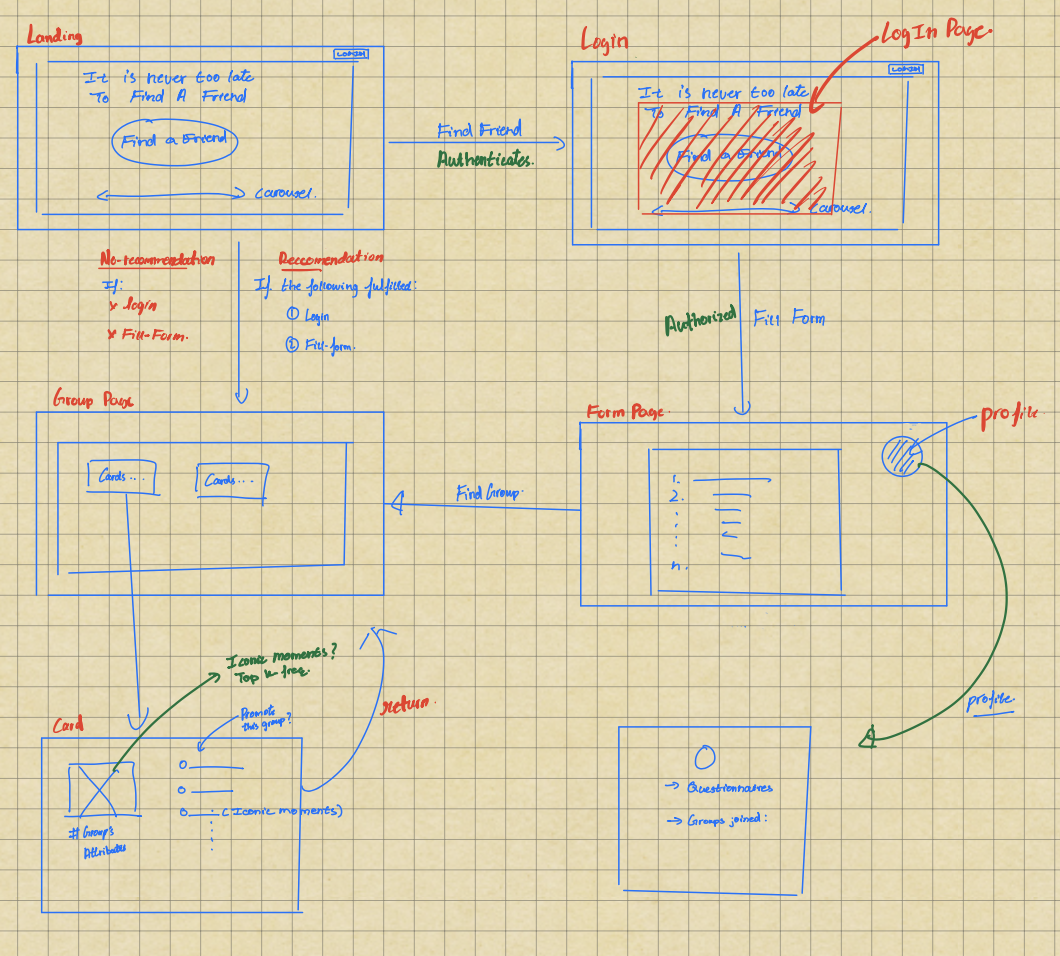 Landing
LOGIN
It is never too late
To Find A Friend
Find a Friend
Carousel.
Find Friend
Authenticates.
Login
LogIn Page.
LOGIN
It is never too late
To Find A Friend
Find a Friend
Carousel.
No-recommendation
If:
x login
x Fill-Form.
Reccomendation
If. the following fulfilled:
① Login
② Fill-form.
Authorized
Fill Form
Group Page
Cards...
Cards...
Find Group.
Form Page.
profile
1.
2.
n.
Iconic moments?
Top k freq.
return.
profile.
Card
Promote
this group?
(Iconic moments)
# Group's
Attributes
→ Questionnaires
→ Groups joined: